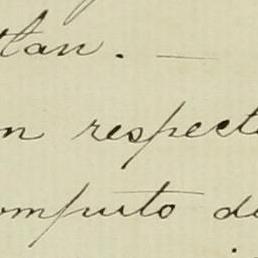 tlan. —
n respect
omputo de